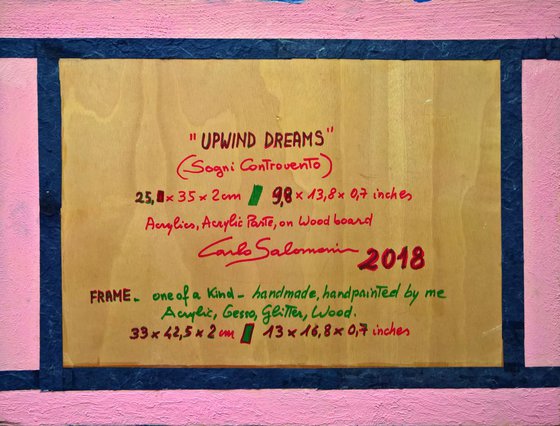 "UPWIND DREAMS"
(Sogni Controvento)
25, x 35 x 2 cm 9,8 x 13,8 x 0,7 inches
Acrylics, Acrylic Paste, on Wood board
Carlo Salomoni 2018
FRAME - one of a Kind - handmade, handpainted by me
Acrylic, Gesso, Glitter, Wood.
33 x 42,5 x 2 cm 13 x 16,8 x 0,7 inches